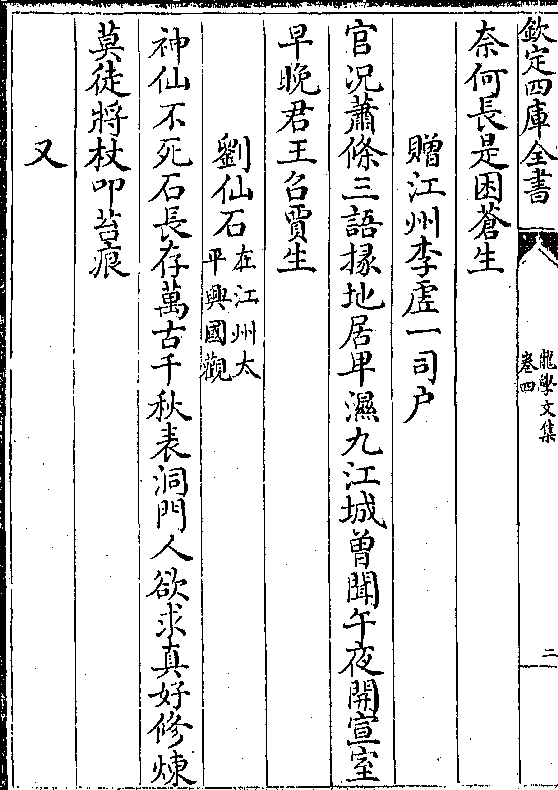 欽定四庫全書
龍學文集
卷四
二
奈何長是困蒼生
贈江州李虛一司户
官况蕭條三語掾地居卑濕九江城曾聞午夜開宣室
早晚君王召賈生
劉仙石在江州太
平興國觀
神仙不死石長存萬古千秋表洞門人欲求真好修煉
莫徒將杖叩苔痕
又